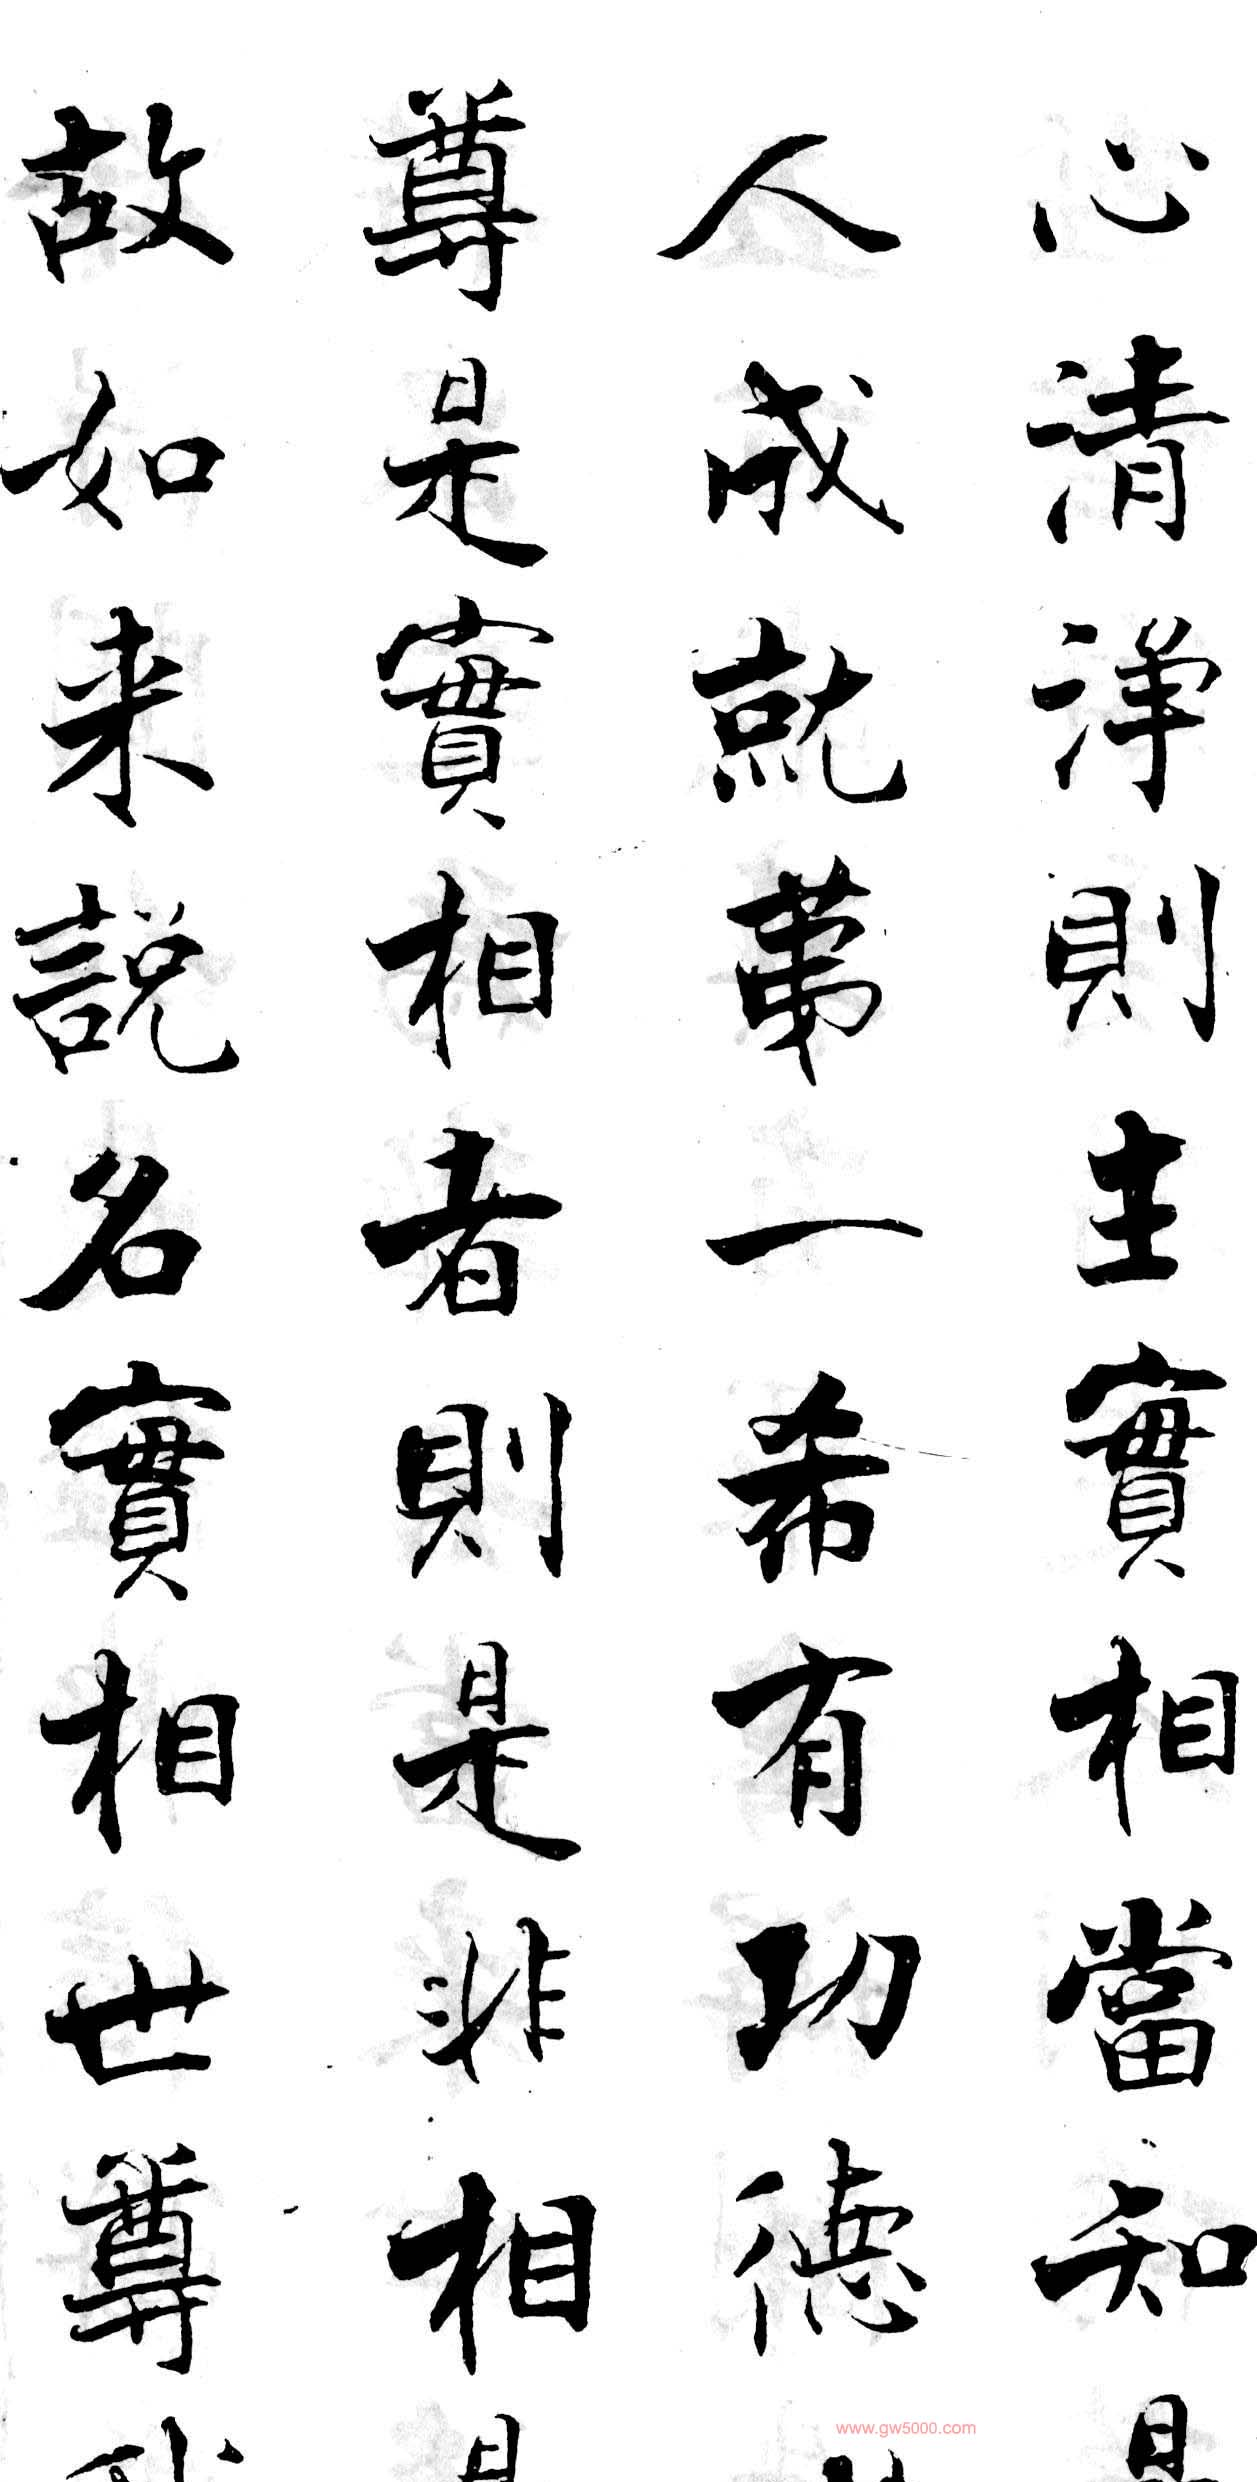 心清淨則生實相當知是
人成就苐一希有功徳
尊是實相者則是非相是
故如来説名實相世尊我
www.gw5000.com